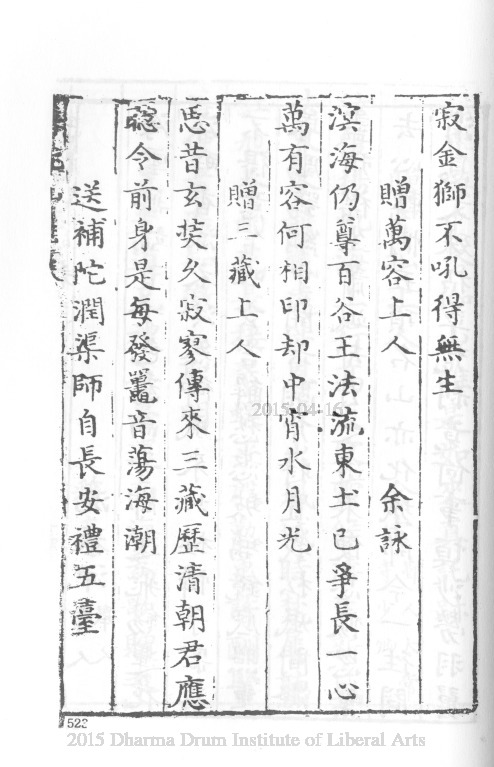 寂金獅不吼得無生
贈萬容上人 余詠
濱海仍尊百谷王法流東土已爭長一心
萬有容何相印却中宵水月光
贈三藏上人
思昔玄奘久寂寥傳來三藏歷清朝君應
聰令前身是每發鼉音蕩海潮
送補陀潤渠師自長安禮五臺
2015-04-16
522
2015 Dharma Drum Institute of Liberal Arts